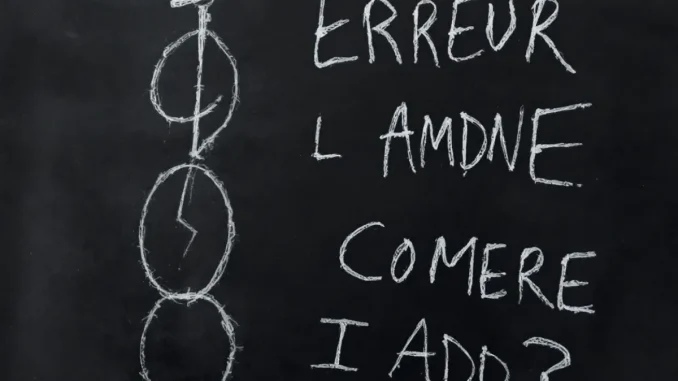 ERREUR
L AMDNE
COMERE
I ADD?